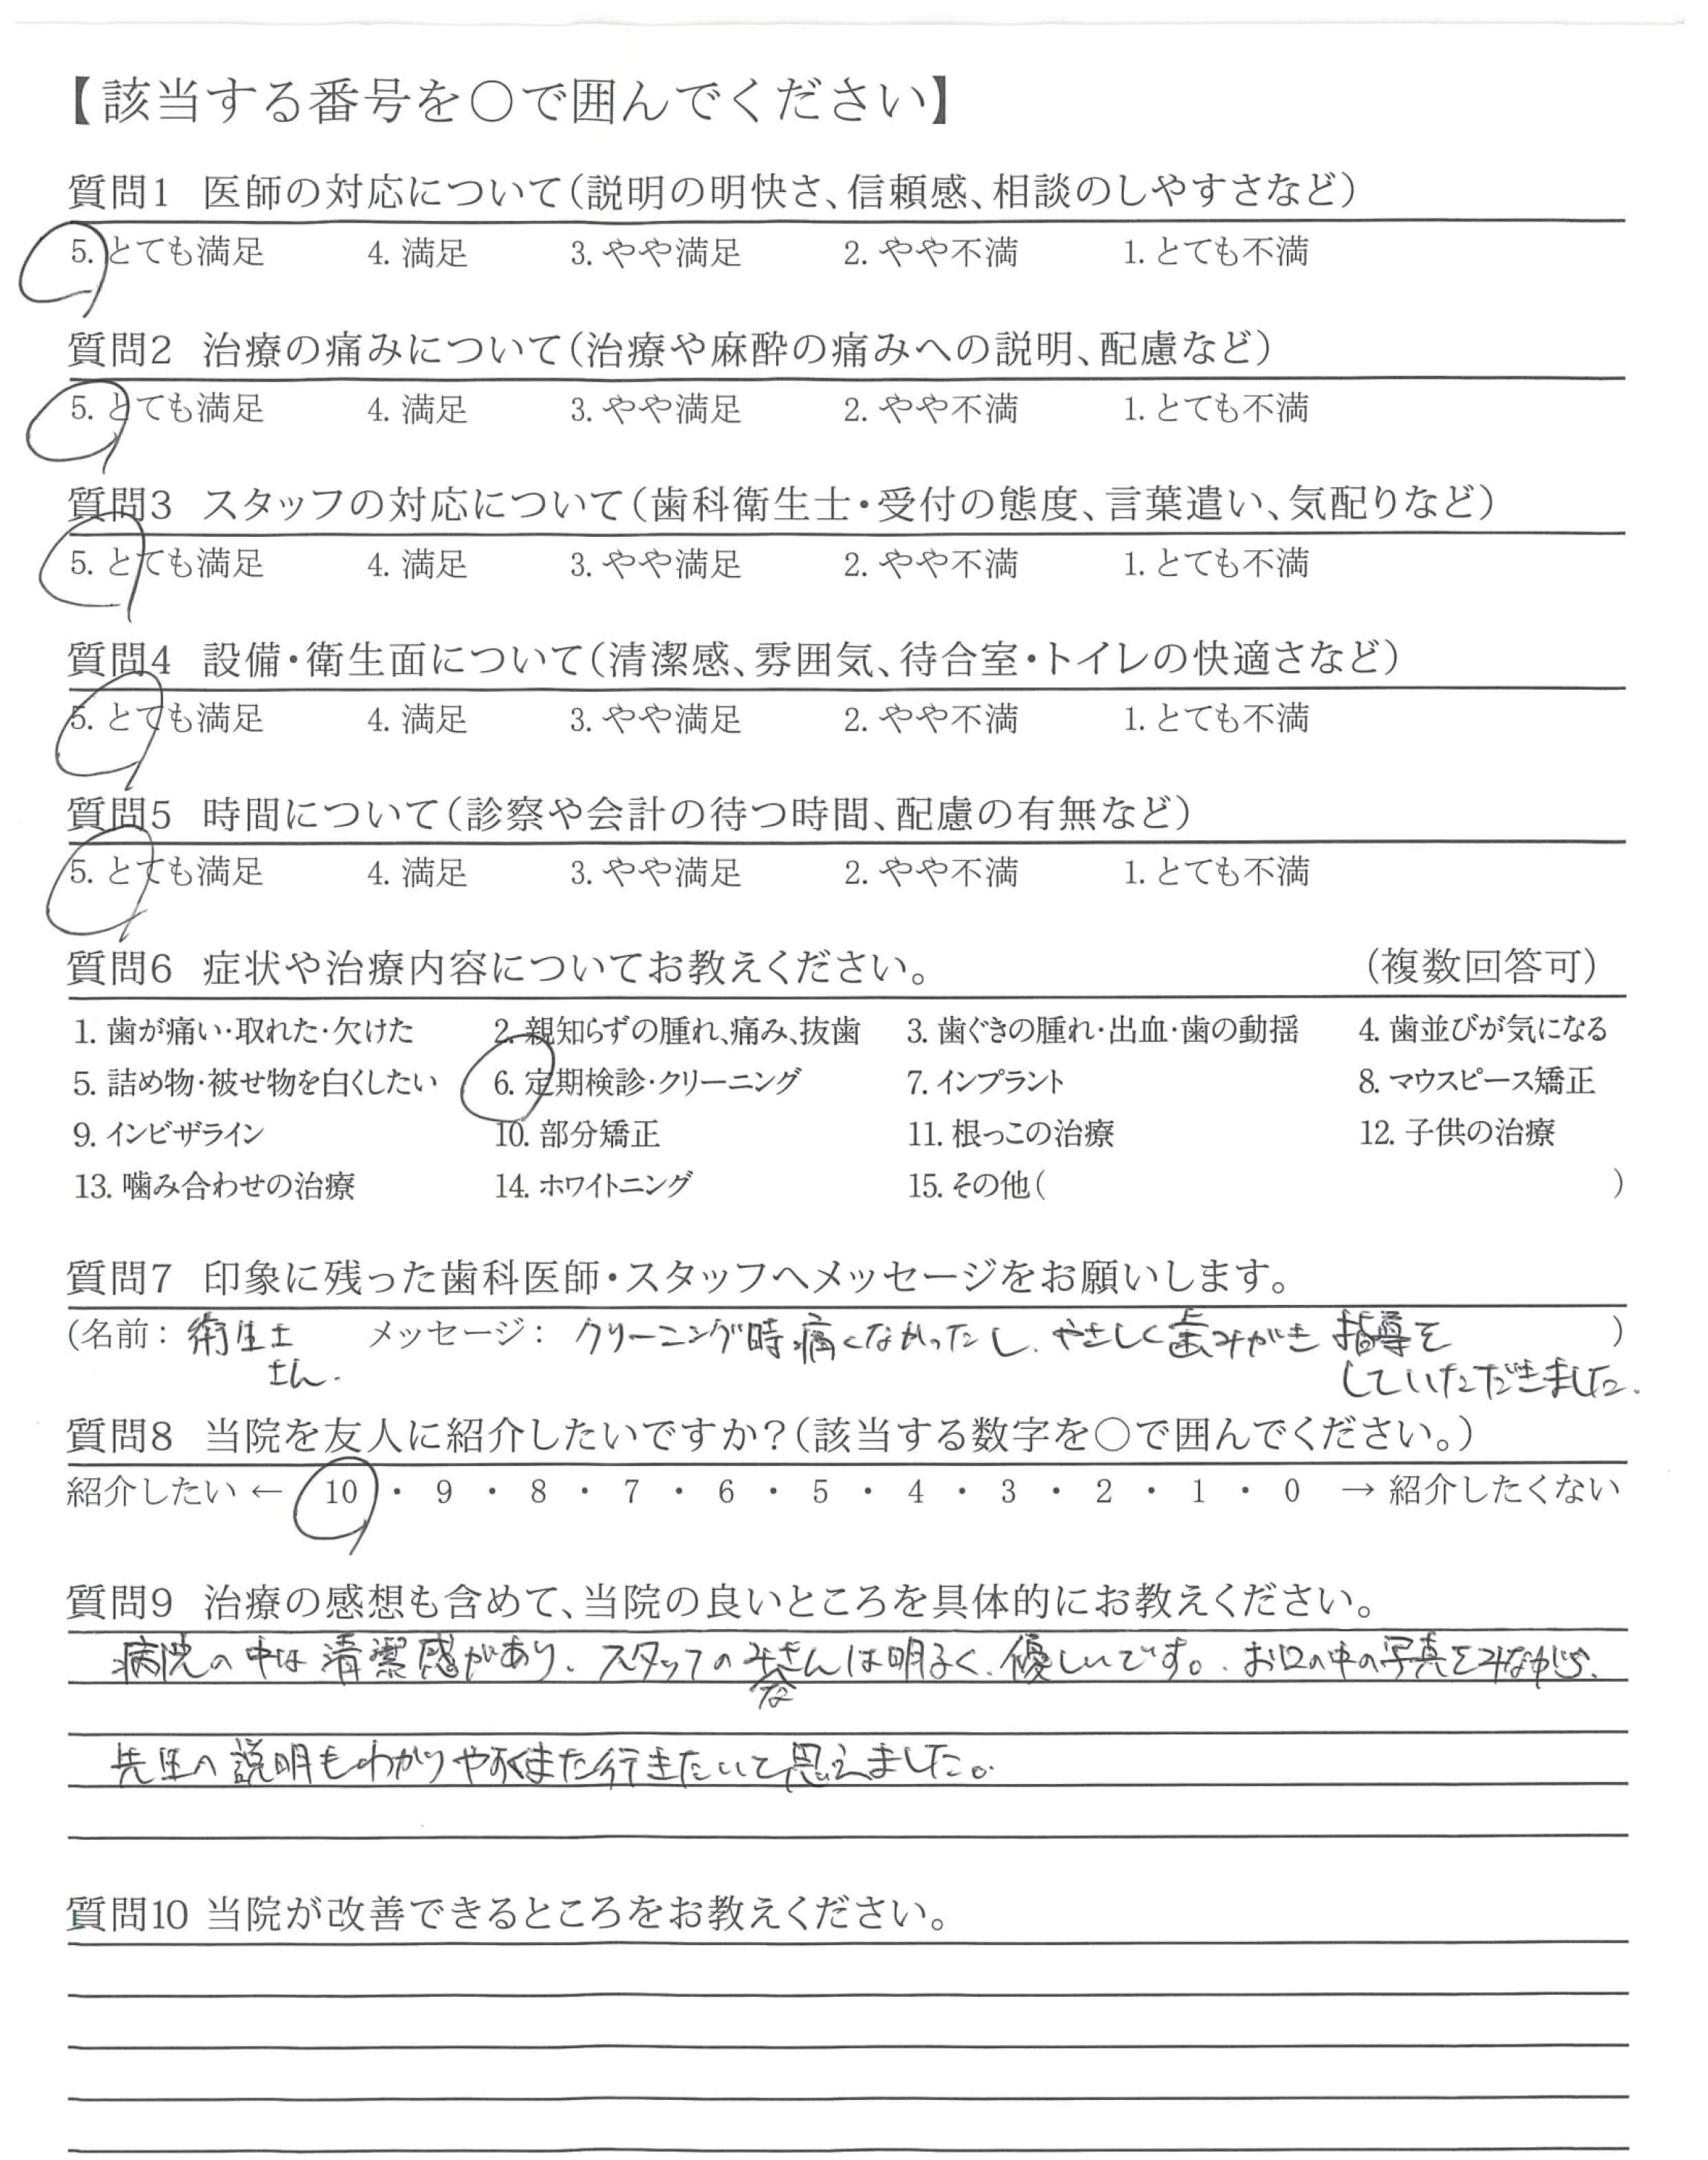 【該当する番号を○で囲んでください】
質問1 医師の対応について(説明の明快さ、信頼感、相談のしやすさなど)
5. とても満足 4. 満足 3. やや満足 2. やや不満 1. とても不満
質問2 治療の痛みについて(治療や麻酔の痛みへの説明、配慮など)
5. とても満足 4. 満足 3. やや満足 2. やや不満 1. とても不満
質問3 スタッフの対応について(歯科衛生士・受付の態度、言葉遣い、気配りなど)
5. とても満足 4. 満足 3. やや満足 2. やや不満 1. とても不満
質問4 設備・衛生面について(清潔感、雰囲気、待合室・トイレの快適さなど)
5. とても満足 4. 満足 3. やや満足 2. やや不満 1. とても不満
質問5 時間について(診察や会計の待つ時間、配慮の有無など)
5. とても満足 4. 満足 3. やや満足 2. やや不満 1. とても不満
質問6 症状や治療内容についてお教えください。 (複数回答可)
1. 歯が痛い・取れた・欠けた 2. 親知らずの腫れ、痛み、抜歯 3. 歯ぐきの腫れ・出血・歯の動揺 4. 歯並びが気になる
5. 詰め物・被せ物を白くしたい 6. 定期検診・クリーニング 7. インプラント 8. マウスピース矯正
9. インビザライン 10. 部分矯正 11. 根っこの治療 12. 子供の治療
13. 噛み合わせの治療 14. ホワイトニング 15. その他( )
質問7 印象に残った歯科医師・スタッフへメッセージをお願いします。
(名前: 衛生士 メッセージ: クリーニング時痛くなかったし、やさしく歯みがき指導を )
さん。 していただきました。
質問8 当院を友人に紹介したいですか?(該当する数字を○で囲んでください。)
紹介したい ← 10 ・ 9 ・ 8 ・ 7 ・ 6 ・ 5 ・ 4 ・ 3 ・ 2 ・ 1 ・ 0 → 紹介したくない
質問9 治療の感想も含めて、当院の良いところを具体的にお教えください。
病院の中は清潔感があり、スタッフのみなさんは明るく、優しいです。お口の中の写真をみながら、
先生の説明もわかりやすくまた行きたいと思えました。
質問10 当院が改善できるところをお教えください。